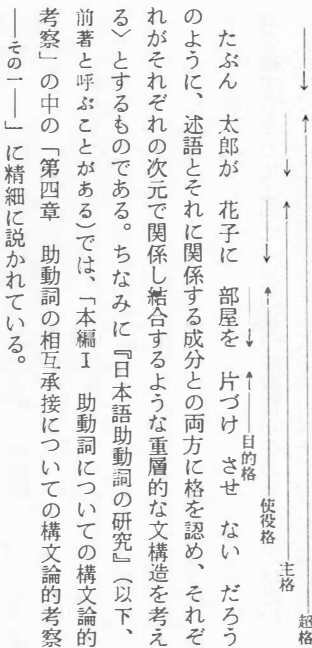 超格
主格
使役格
目的格
たぶん　太郎が　花子に　部屋を　片づけ　させ　ない　だろう
のように、述語とそれに関係する成分との両方に格を認め、それぞ
れがそれぞれの次元で関係し結合するような重層的な文構造を考え
る〉とするものである。ちなみに『日本語助動詞の研究』（以下、
前著と呼ぶことがある）では、「本編Ⅰ　助動詞についての構文論的
考察」の中の「第四章　助動詞の相互承接についての構文論的考察
――その一――」に精細に説かれている。